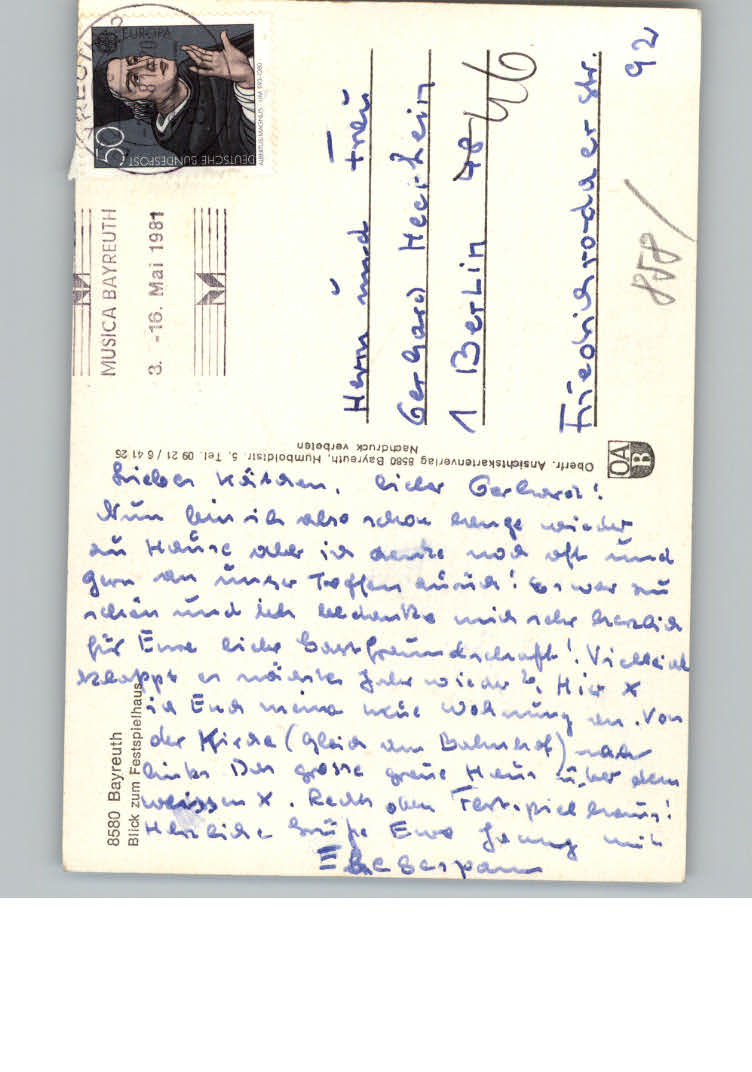 EUROPA
50
DEUTSCHE BUNDESPOST
ALBERTUS MAGNUS
MUSICA BAYREUTH
3. -16. Mai 1981
Herrn und Frau
Gerhard
1 Berlin 48 46
Friedrichrodaer Str. 92
858/
Oberfr. Ansichtskartenverlag 8580 Bayreuth, Humboldtstr. 5, Tel. 09 21 / 6 41 25
Nachdruck verboten
OA
B
8580 Bayreuth
Blick zum Festspielhaus
Liebes Kätchen, lieber Gerhard!
Nun bin ich also schon lange wieder
zu Hause aber ich denke noch oft und
gern an unser Treffen zurück! Es war zu
schön und ich bedanke mich sehr herzlich
für Eure liebe Gastfreundschaft! Vielleicht
klappt es nächstes Jahr wieder?. Hier X
ich Euch meine neue Wohnung an. Von
der Kirche (gleich am Bahnhof) nach
links Das grosse graue Haus über dem
weissen X. Rechts oben Festspielhaus!
Herzliche Grüße Eure